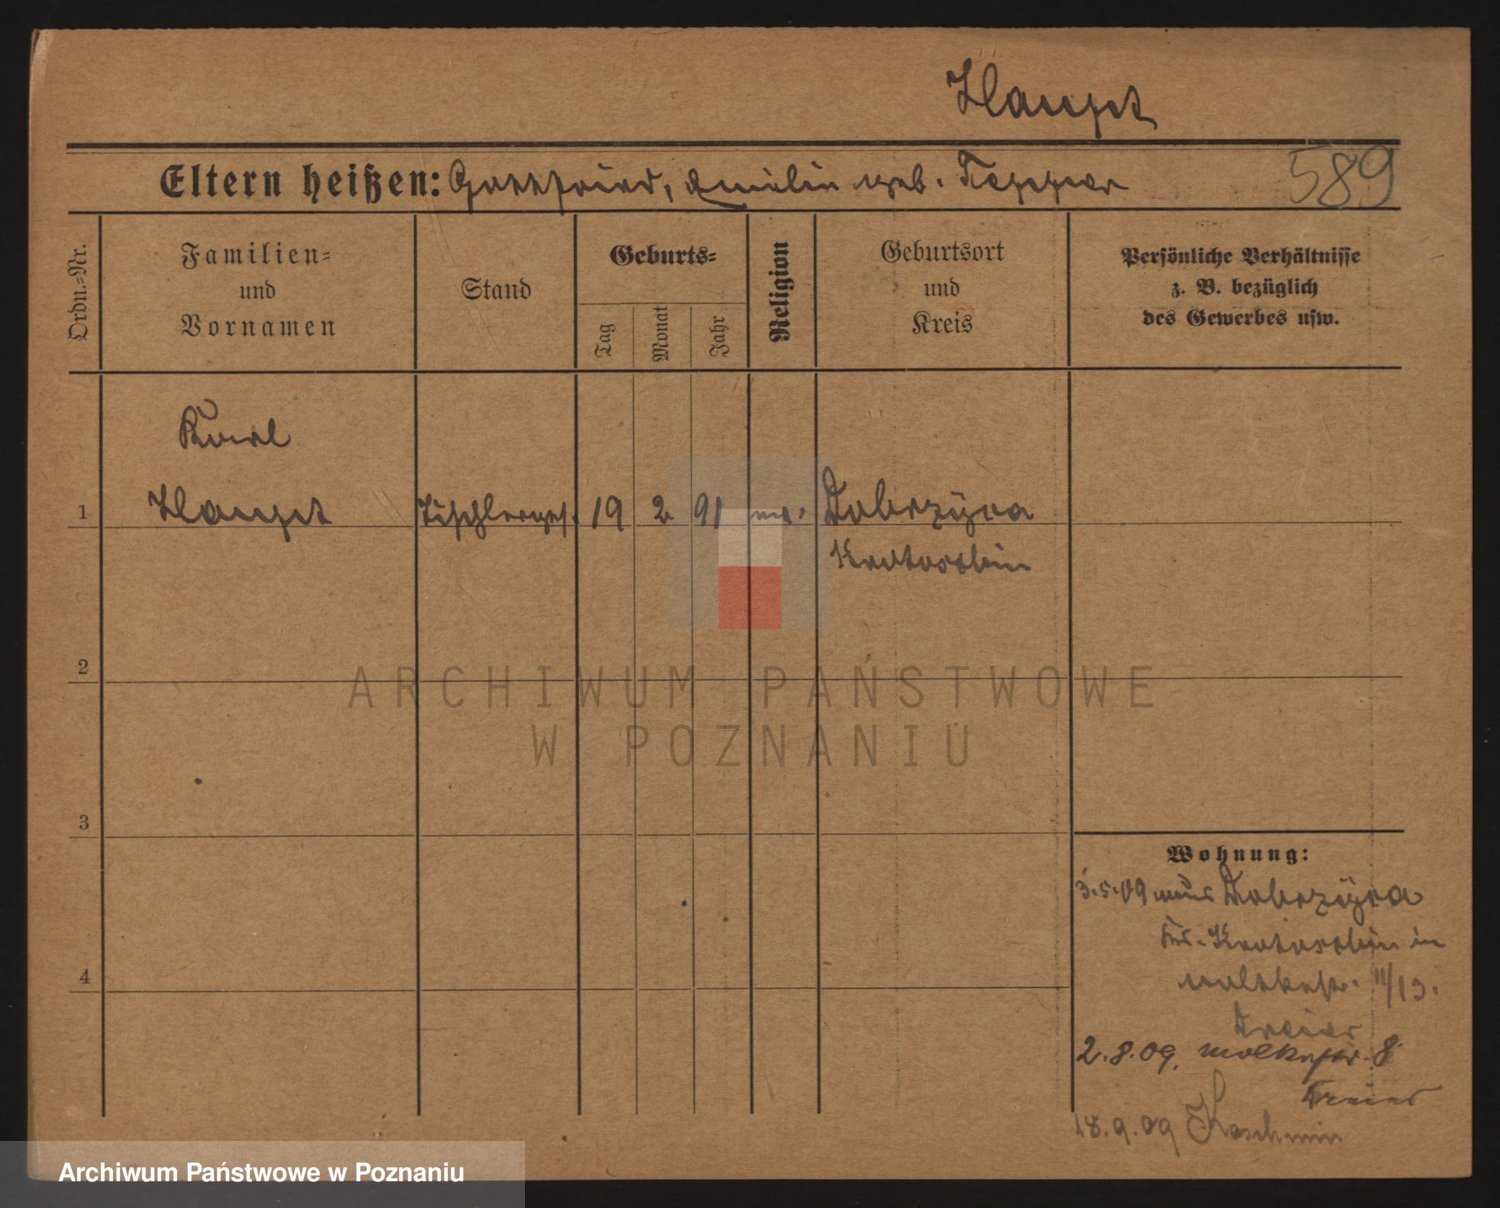 Haupt
Eltern heißen: Gottfried, Emilie geb. Tepper
589
Ordn.-Nr.
Familien-
und
Vornamen
Stand
Geburts-
Tag
Monat
Jahr
Religion
Geburtsort
und
Kreis
Persönliche Verhältnisse
z. B. bezüglich
des Gewerbes usw.
Karl
1 Haupt Tischlerges. 19 2 91 ev. Dobrzyca
Krotoschin
2
3
4
Wohnung:
3.5.09 aus Dobrzyca
Kr. Krotoschin in
Moltkestr. 11/13.
2.8.09. Moltkestr. 8
18.9.09 Koschmin
ARCHIWUM PAŃSTWOWE
W POZNANIU
Archiwum Państwowe w Poznaniu